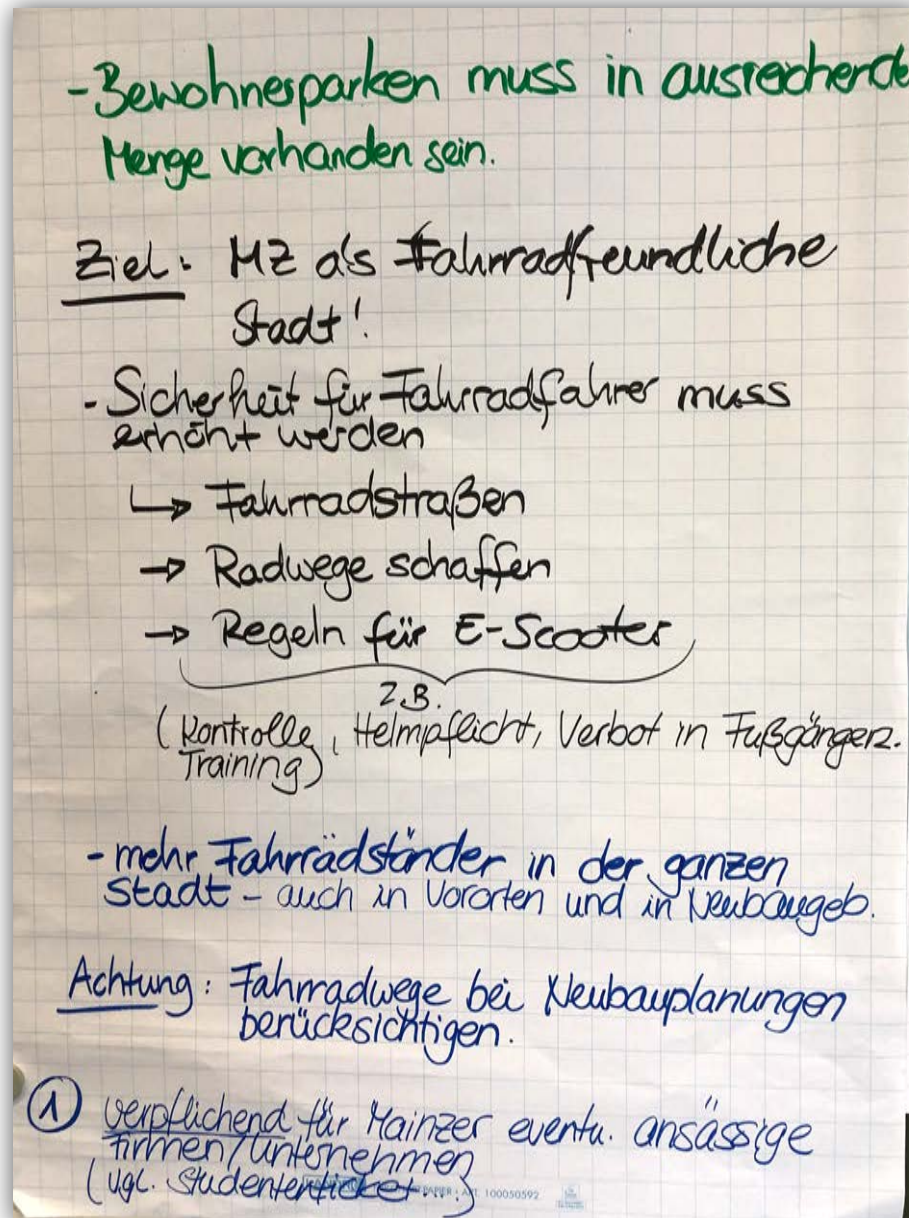 - Bewohnesparken muss in ausreichende
Menge vorhanden sein.
Ziel: MZ als Fahrradfreundliche
Stadt!
- Sicherheit für Fahrradfahrer muss
erhöht werden
↳ Fahrradstraßen
→ Radwege schaffen
→ Regeln für E-Scooter
z.B.
(Kontrolle, Helmpflicht, Verbot in Fußgängerz.
Training)
- mehr Fahrrädständer in der ganzen
Stadt - auch in Vororten und in Neubaugeb.
Achtung: Fahrradwege bei Neubauplanungen
berücksichtigen.
① verpflichend für Mainzer eventu. ansässige
firmen/Unternehmen
(vgl. Studententicket...)
100050592